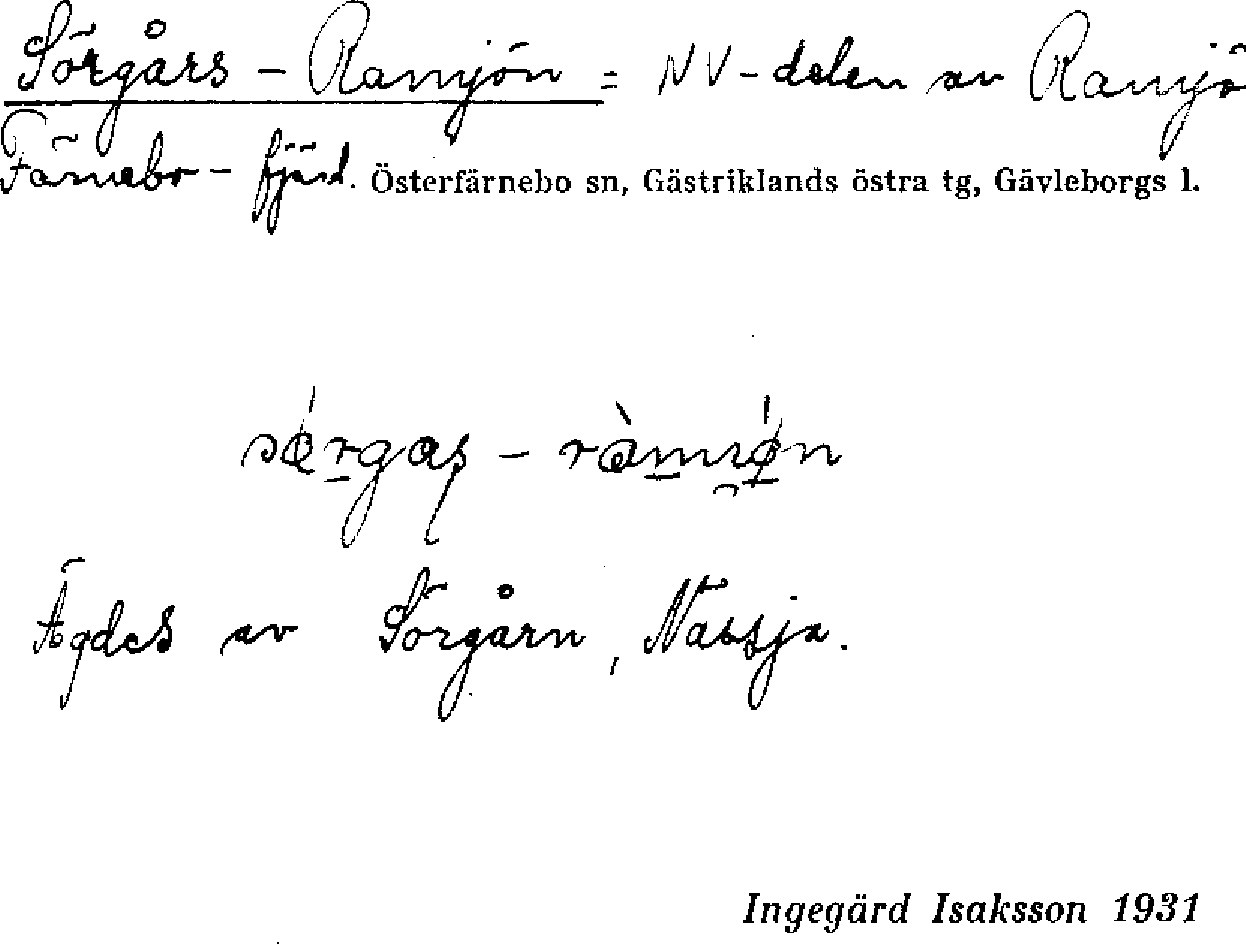 Sörgårs - Ramsjön = NV-delen av Ramsjö
Färnebo - fjärd. Österfärnebo sn, Gästriklands östra tg, Gävleborgs l.
Ägdes av Sörgårn, Nässja.
Ingegärd Isaksson 1931